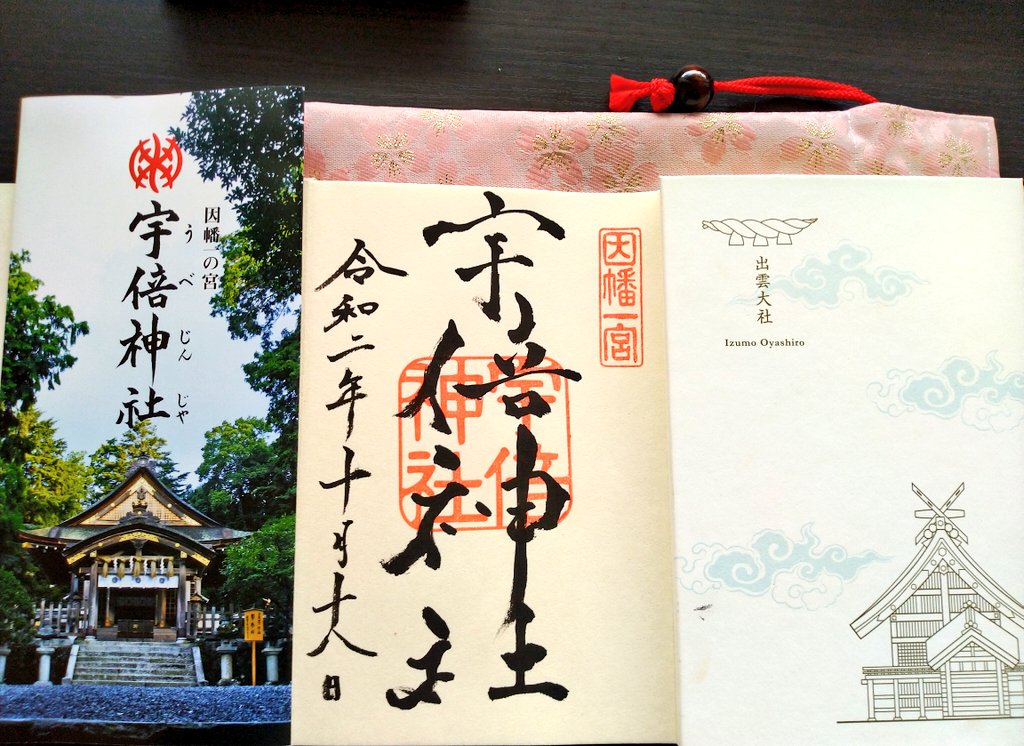 因幡一の宮
うべじんじゃ
宇倍神社
因幡一宮
宇倍神社
宇倍神社
令和二年十月十八日
出雲大社
Izumo Oyashiro